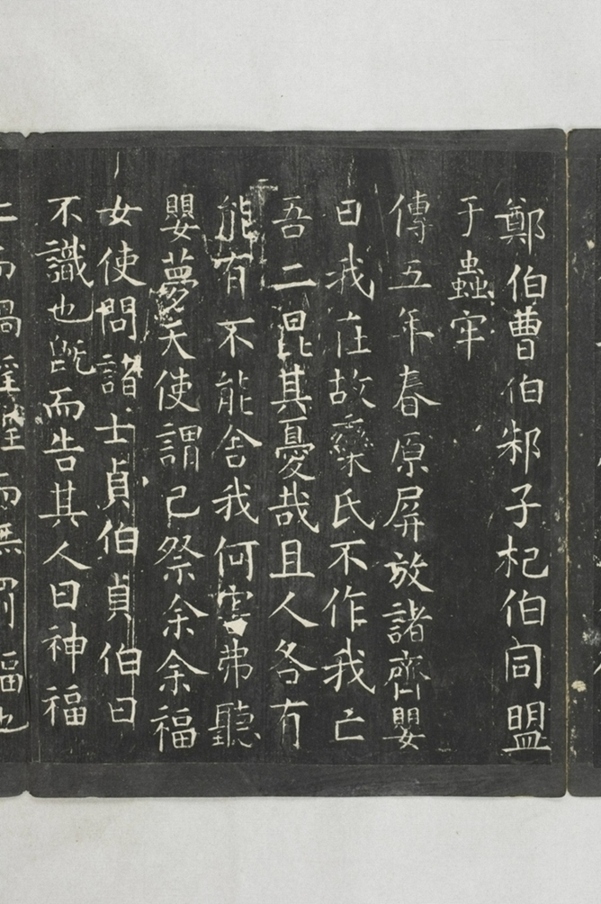 鄭伯曹伯邾子杞伯同盟
于蟲牢
傳五年春原屏放諸齊嬰
曰我在故欒氏不作我亡
吾二昆其憂哉且人各有
能有不能舍我何害弗聽
嬰夢天使謂己祭余余福
女使問諸士貞伯貞伯曰
不識也既而告其人曰神福
仁而禍淫淫而無罰福也